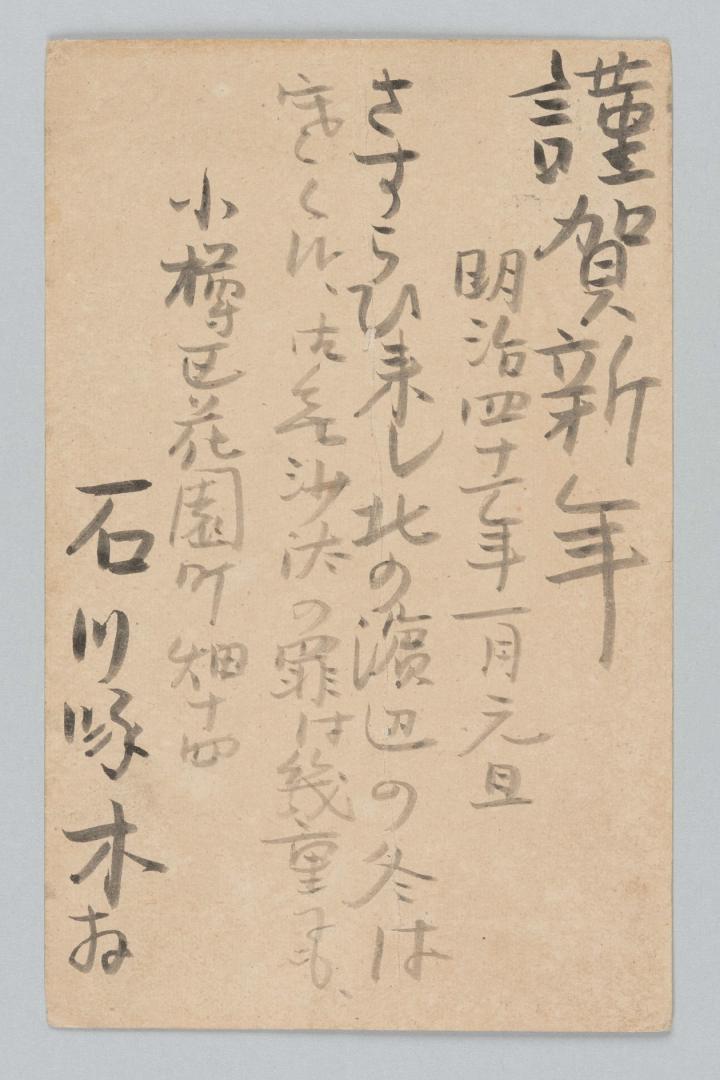 謹賀新年
明治四十一年一月元旦
さすらひ来し北の濱辺の冬は
寒く候、御無沙汰の罪は幾重にも、
小樽区花園町畑十四
石川啄木